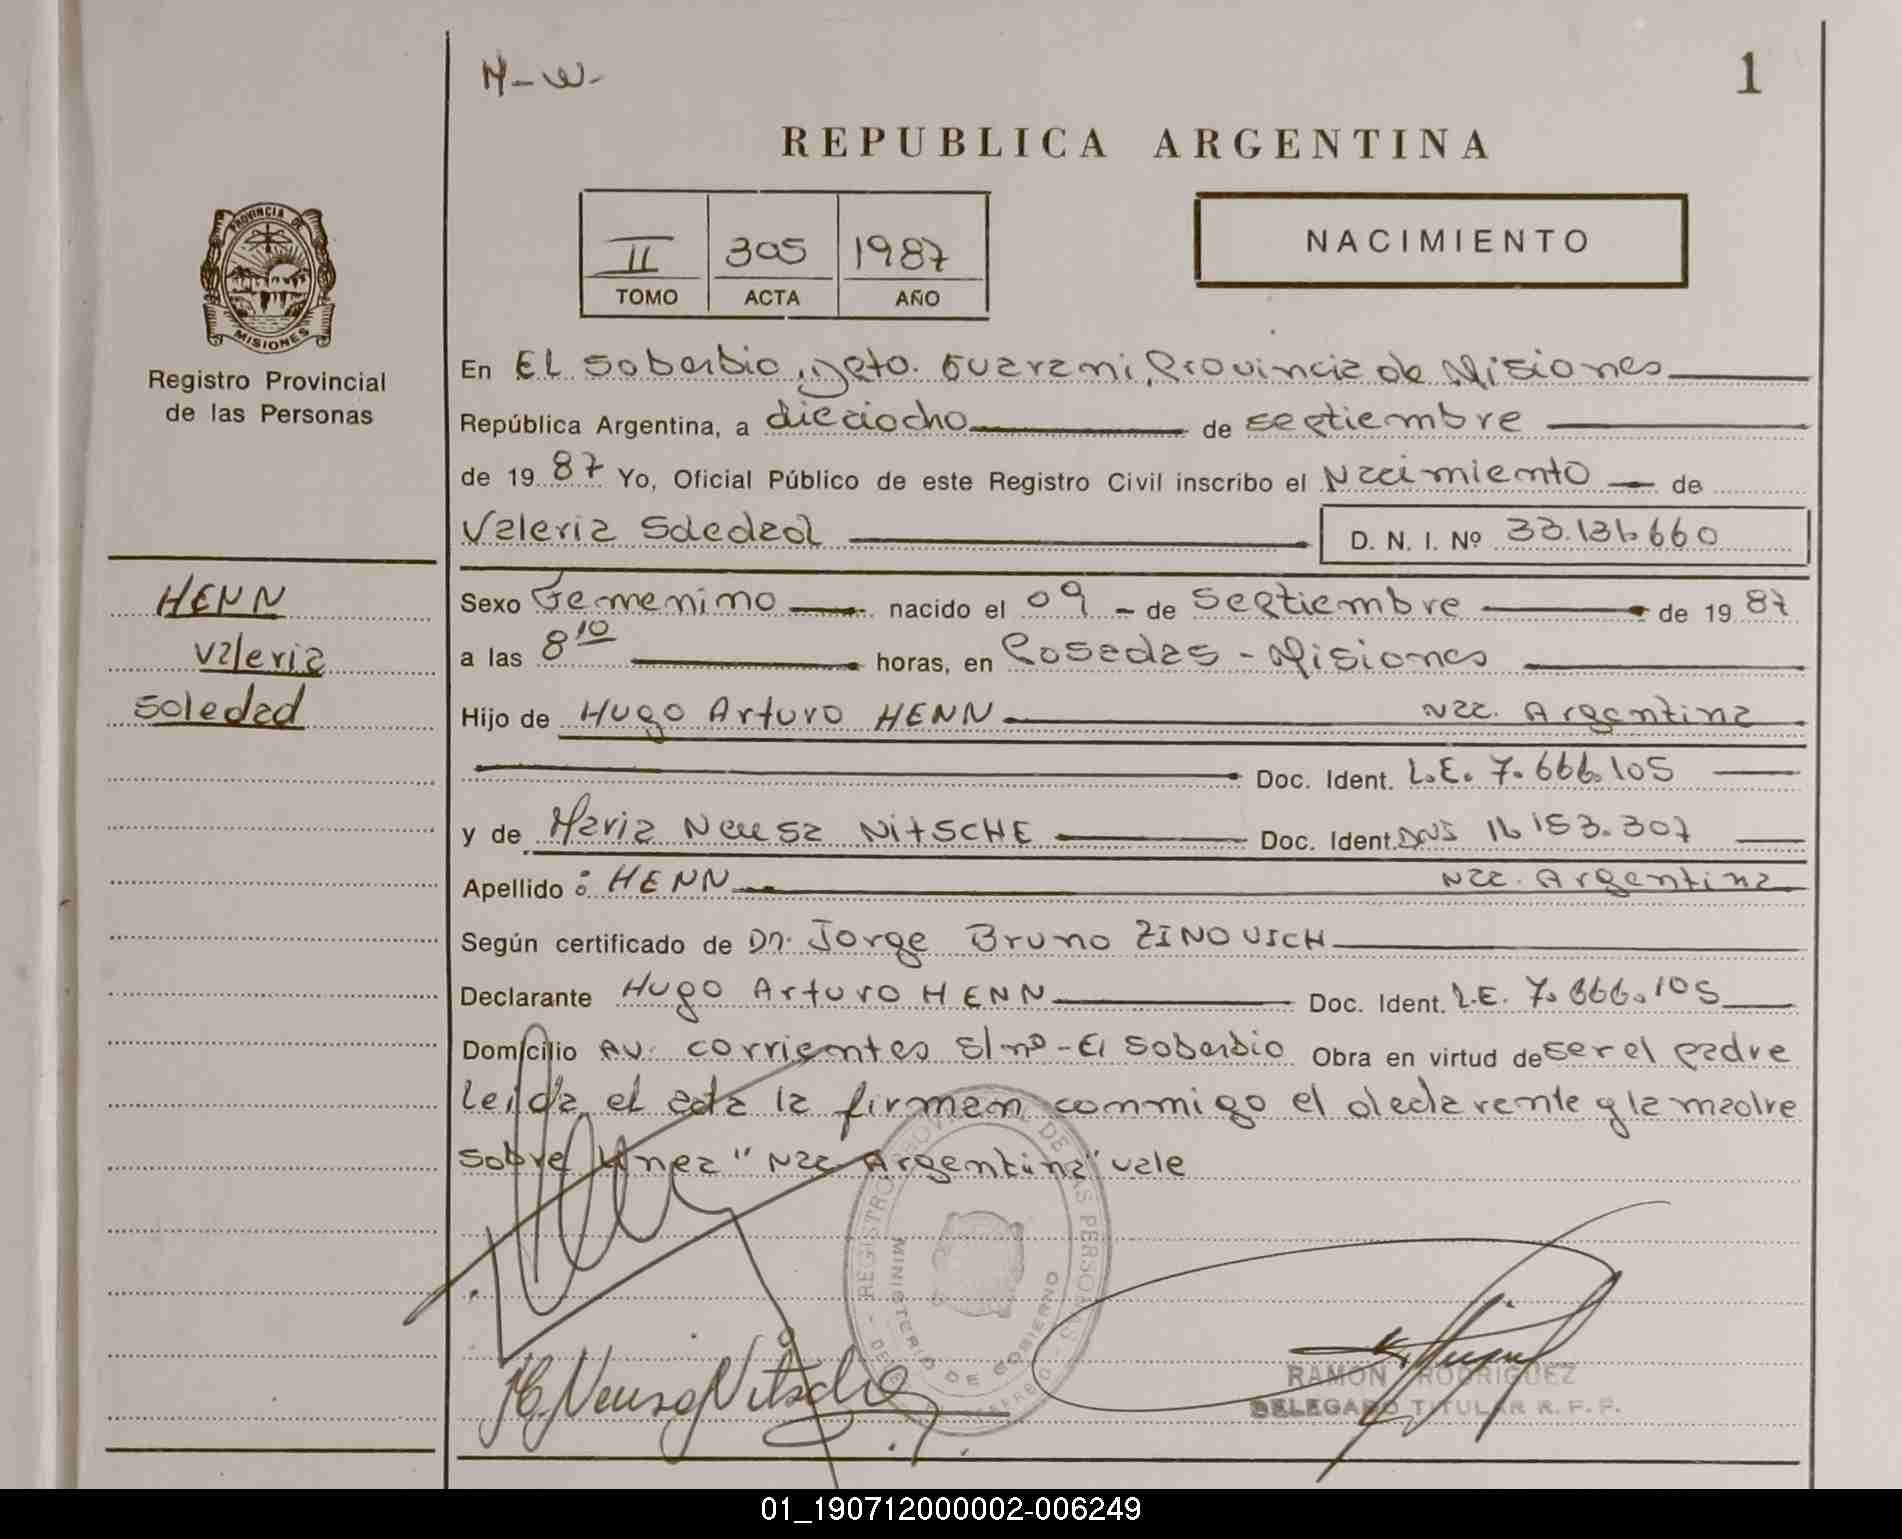 N-W-
1
REPUBLICA ARGENTINA
II 305 1987
TOMO ACTA AÑO
NACIMIENTO
PROVINCIA DE
MISIONES
Registro Provincial
de las Personas
En El Soberbio, Dpto. Guarani, Provincia de Misiones
República Argentina, a dieciocho de septiembre
de 19 87 Yo, Oficial Público de este Registro Civil inscribo el Nacimiento de
Valeria Soledad D. N. I. Nº 33.131.660
HENN
Valeria
Soledad
Sexo Femenino nacido el 09 - de Septiembre de 19 87
a las 8 10 horas, en Posadas - Misiones
Hijo de Hugo Arturo HENN Nac. Argentina
Doc. Ident. L.E. 7.666.105
y de Maria Neusa NITSCHE Doc. Ident. DNI 16.153.307
Apellido : HENN Nac. Argentina
Según certificado de Dr. Jorge Bruno ZINOVICH
Declarante Hugo Arturo HENN Doc. Ident. L.E. 7.666.105
Domicilio Av. Corrientes S/nº - El Soberbio Obra en virtud de ser el padre
Leida el acta la firman conmigo el declarante y la madre
sobre linea "Nac Argentina" vale
REGISTRO PROVINCIAL DE LAS PERSONAS
MINISTERIO DE GOBIERNO
M. Neusa Nitsche
RAMON RODRIGUEZ
DELEGADO TITULAR R. P. P.
01_190712000002-006249